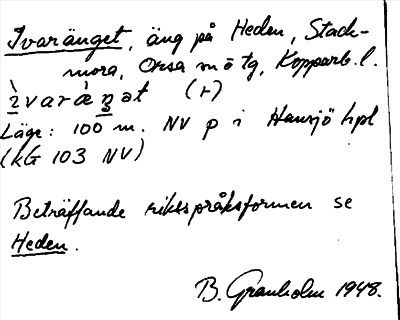 Ivaränget, äng på Heden, Stack-
mora, Orsa m ö tg, Kopparb. l.
ìvaræ̀ŋət (r)
Läge: 100 m. NV p i Hansjö hpl
(KG 103 NV)
Beträffande riksspråksformen se
Heden.
B. Granholm 1948.